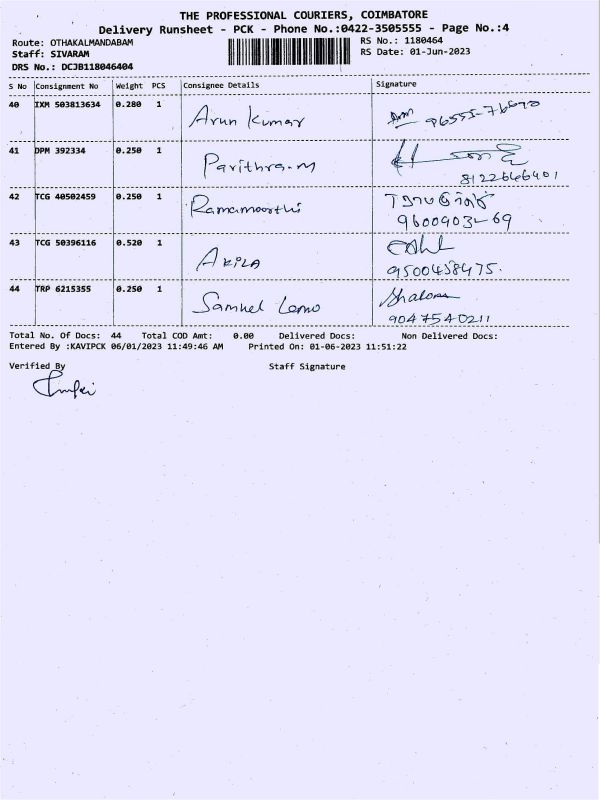 THE PROFESSIONAL COURIERS, COIMBATORE
Delivery Runsheet - PCK - Phone No.:0422-3505555 - Page No.:4
Route: OTHAKALMANDABAM RS No.: 1180464
Staff: SIVARAM RS Date: 01-Jun-2023
DRS No.: DCJB118046404
S No Consignment No Weight PCS Consignee Details Signature
40 IXM 503813634 0.280 1 Arun Kumar
41 DPM 392334 0.250 1 Pavithra.M
8122646401
42 TCG 40502459 0.250 1 Ramamoorthi
9600903269
43 TCG 50396116 0.520 1 AKILA
9500438475.
44 TRP 6215355 0.250 1 Samuel
9047540211
Total No. Of Docs: 44 Total COD Amt: 0.00 Delivered Docs: Non Delivered Docs:
Entered By :KAVIPCK 06/01/2023 11:49:46 AM Printed On: 01-06-2023 11:51:22
Verified By Staff Signature